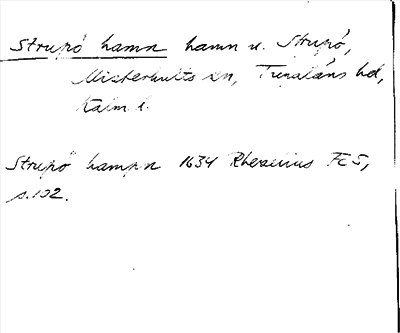 Strupö hamn hamn v. Strupö,
Misterhults sn, Tunaläns hd,
Kalm l.
Strupö hampn 1634 Rhezelius FCS,
s. 102.